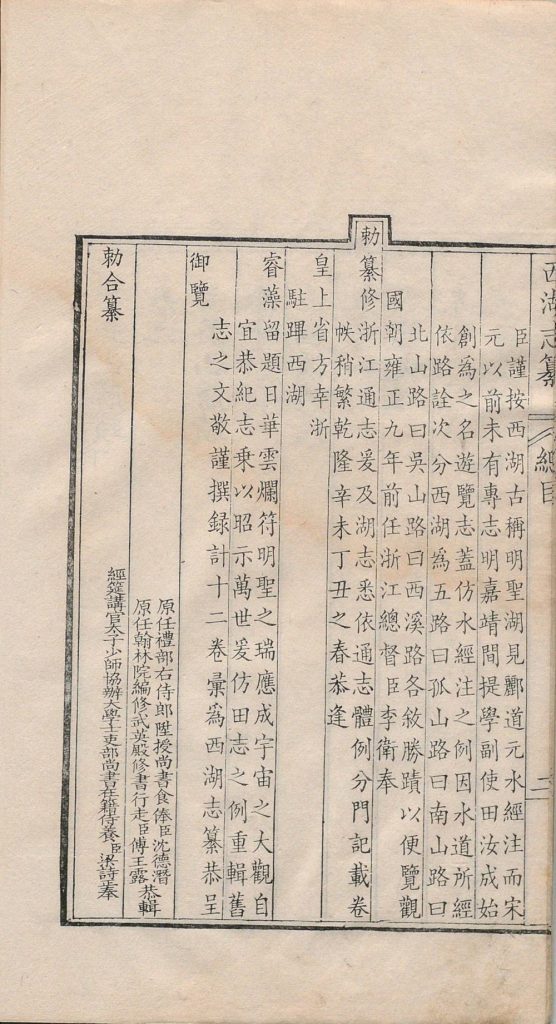 西湖志纂 總目 二
臣謹按西湖古稱明聖湖見酈道元水經注而宋
元以前未有專志明嘉靖間提學副使田汝成始
創為之名遊覽志蓋仿水經注之例因水道所經
依路詮次分西湖為五路曰孤山路曰南山路曰
北山路曰吳山路曰西溪路各敘勝蹟以便覽觀
國朝雍正九年前任浙江總督臣李衛奉
勅纂修浙江通志爰及湖志悉依通志體例分門記載卷
帙稍繁乾隆辛未丁丑之春恭逢
皇上省方幸浙
駐蹕西湖
睿藻留題日華雲爛符明聖之瑞應成宇宙之大觀自
宜恭紀志乘以昭示萬世爰仿田志之例重輯舊
志之文敬謹撰録計十二卷彙為西湖志纂恭呈
御覽
原任禮部右侍郎陞授尚書食俸臣沈德潛
原任翰林院編修武英殿修書行走臣傅王露
恭輯
經筵講官太子少師協辦大學士吏部尚書在籍侍養臣梁詩正奉
勅合纂